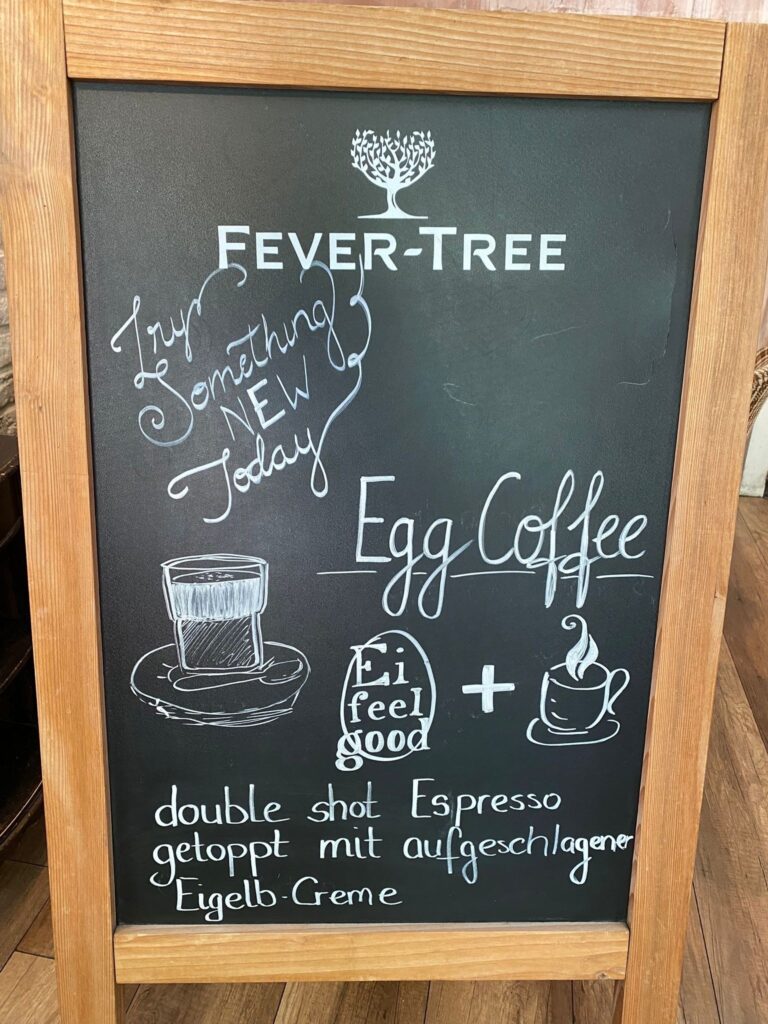 FEVER-TREE
Try
Something
NEW
Today
Egg Coffee
Ei
feel
good
+
double shot Espresso
getoppt mit aufgeschlagener
Eigelb-Creme